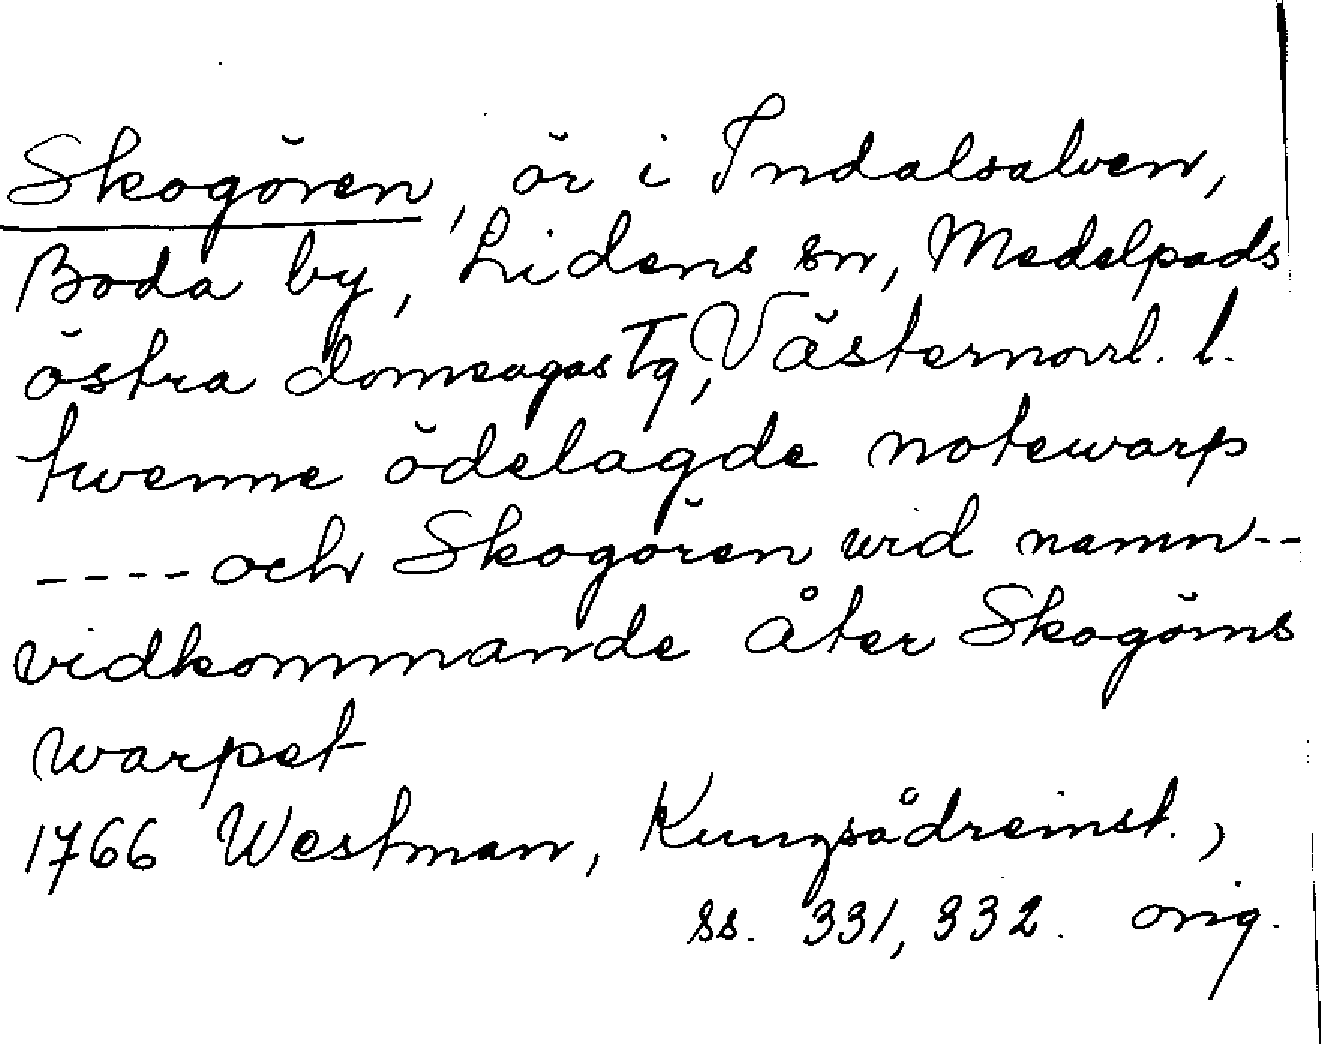 Skogören, ör i Indalsalven,
Boda by, Lidens sn, Medelpads
östra domsagas Tg, Västernorrl. l.
twenne ödelagde notewarp
---- och Skogören wid namn --
vidkommande åter Skogörns
warpet
1766 Westman, Kungsådreinst.,
ss. 331, 332. orig.